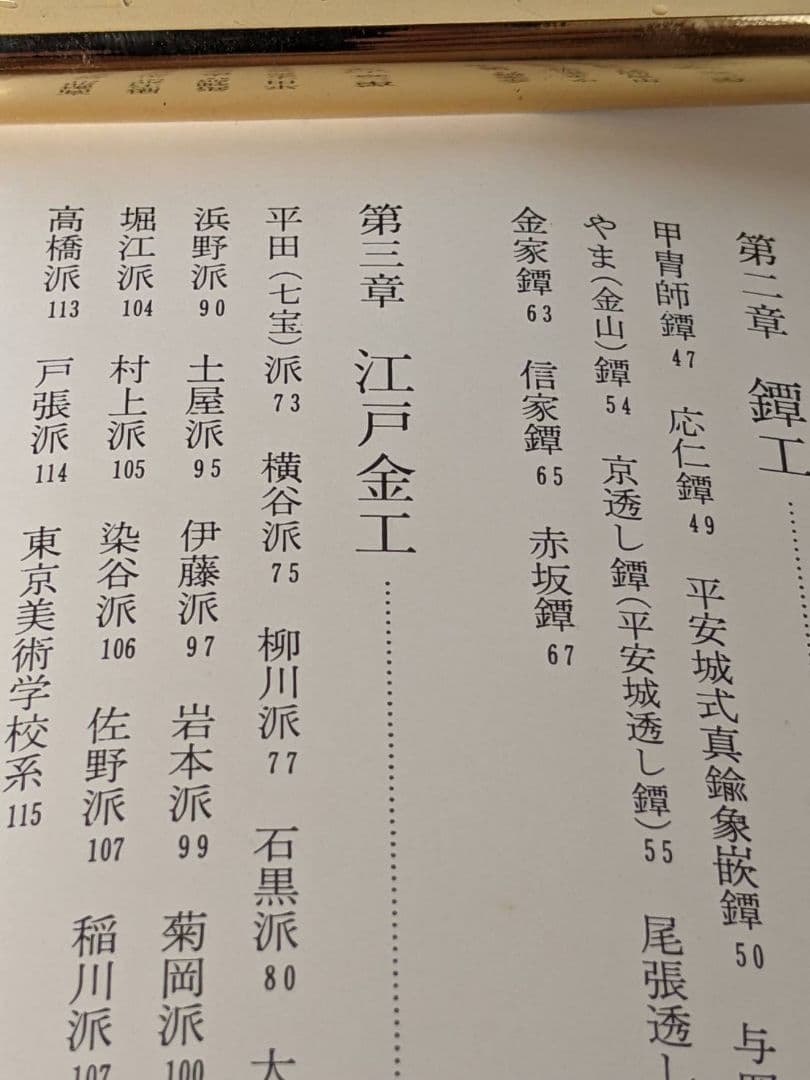 第二章 鐔工
甲冑師鐔 47 応仁鐔 49 平安城式真鍮象嵌鐔 50 与
やま(金山)鐔 54 京透し鐔(平安城透し鐔) 55 尾張透し
金家鐔 63 信家鐔 65 赤坂鐔 67
第三章 江戸金工
平田(七宝)派 73 横谷派 75 柳川派 77 石黒派 80 大
浜野派 90 土屋派 95 伊藤派 97 岩本派 99 菊岡派 100
堀江派 104 村上派 105 染谷派 106 佐野派 107 稲川派 107
高橋派 113 戸張派 114 東京美術学校系 115